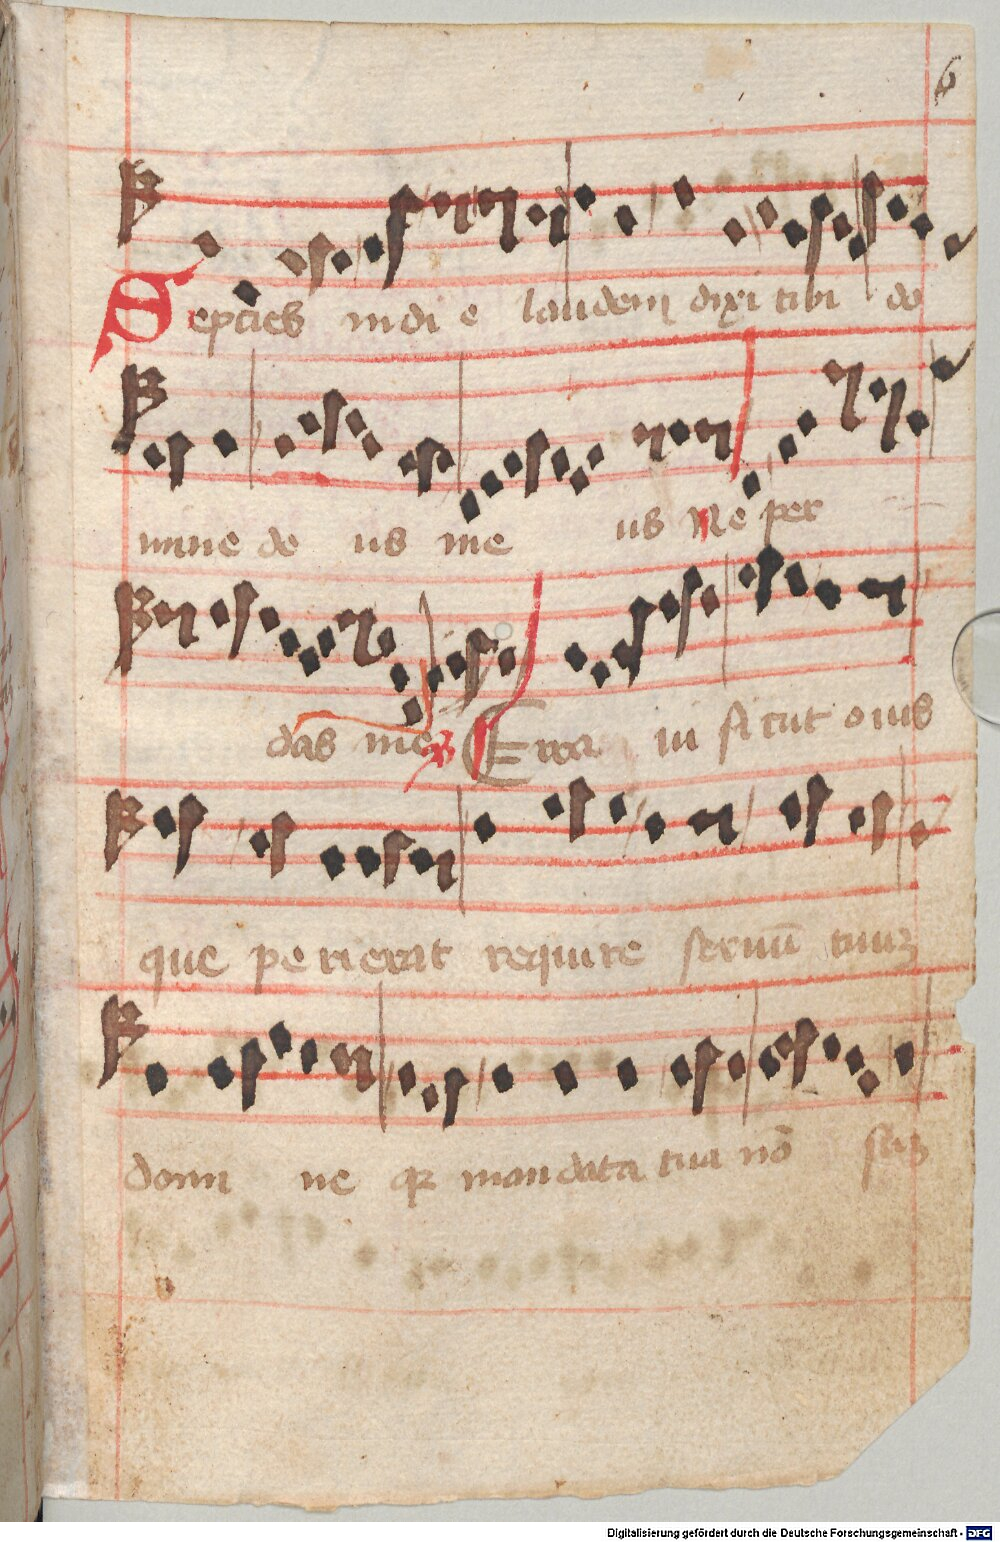 6
Septies in di e laudem dixi tibi do
mine de us me us Ne per
das me Erra ui sicut ouis
que pe rierat require seruū tuuȝ
domi ne qꝛ mandata tua nō
Digitalisierung gefördert durch die Deutsche Forschungsgemeinschaft - DFG